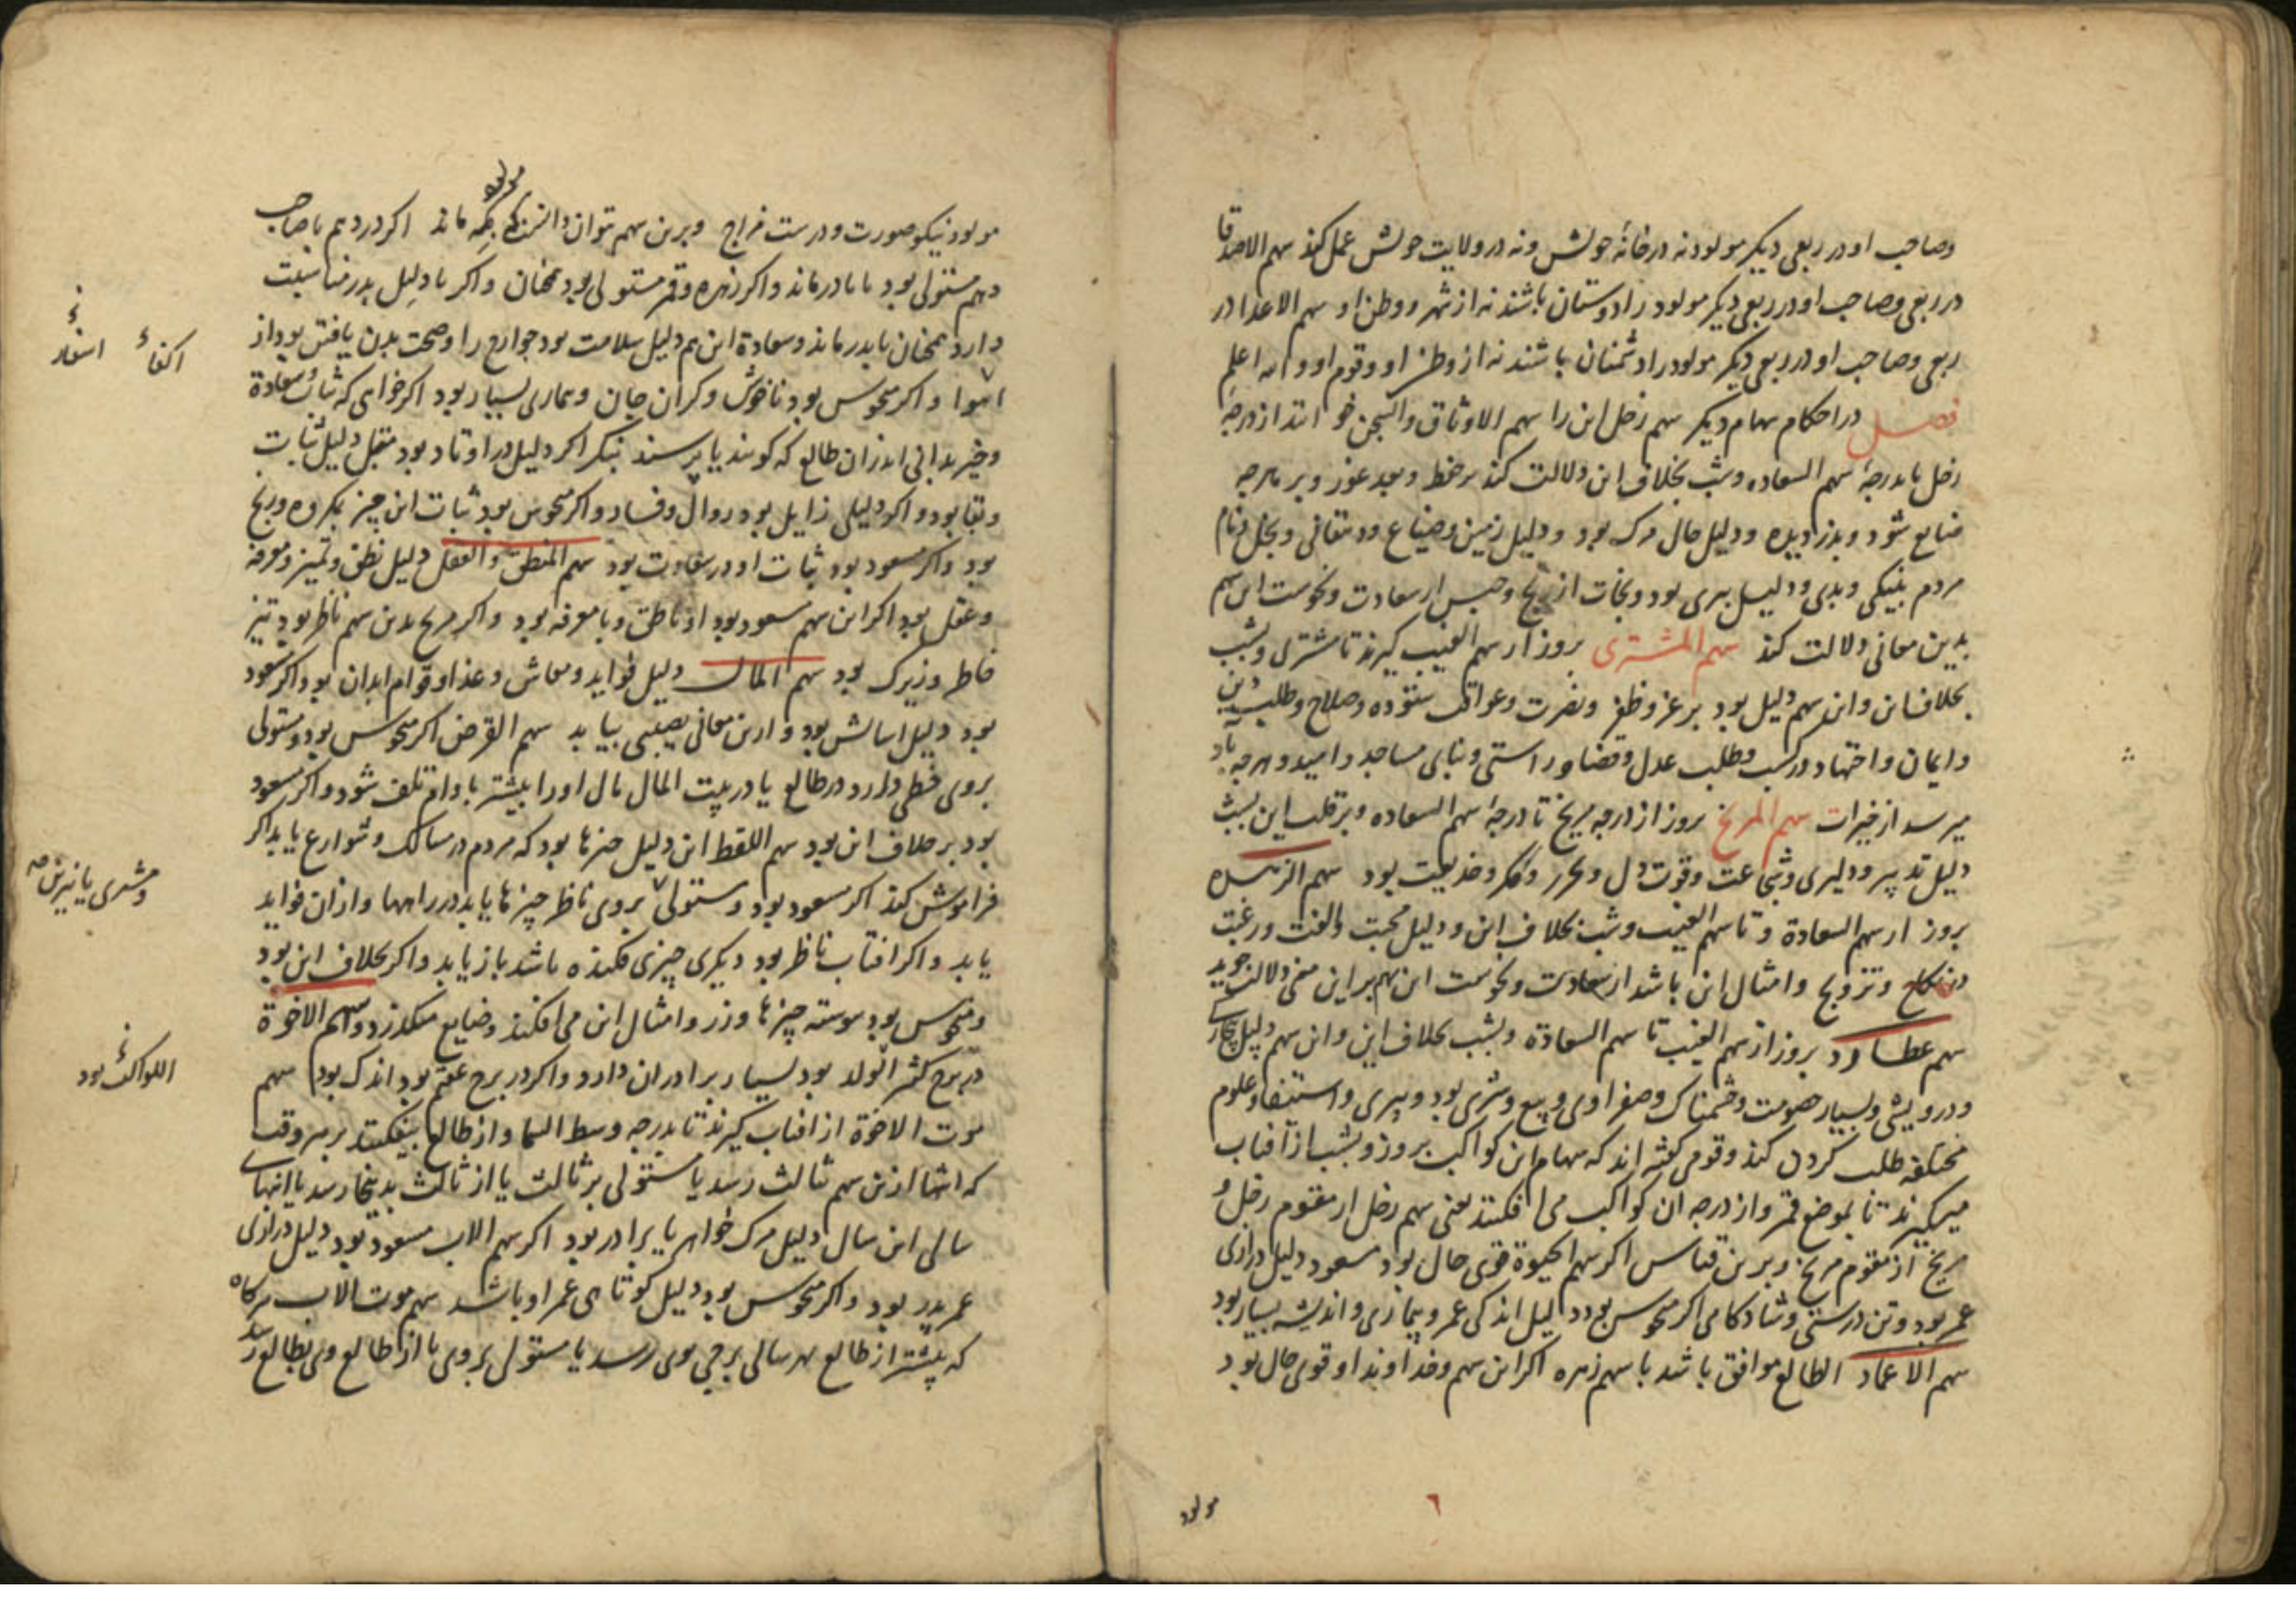 وصاحب او در ربعی دیکر مولود نه در خانهٔ خویش ونه در ولایت خویش عمل کند سهم الاصدقا
در ربعی وصاحب او در ربعی دیکر مولود را دوستان باشند نه از شهر ووطن او سهم الاعدا در
ربعی وصاحب او در ربعی دیکر مولود را دشمنان باشند نه از وطن او وقوم او والله اعلم
فصل در احکام سهام دیکر سهم زحل این را سهم الاوثاق والسجن ابتدا از درجهٔ
زحل تا درجهٔ سهم السعاده وشب بخلاف این دلالت کند بر حفظ وبعد غور وبر هرچه
ضایع شود وبدزدیده ودلیل حال مرک بود ودلیل زمین وضیاع ودهقانی وبخل ونام
مردم بنیکی وبدی ودلیل پیری بود ونجات از رنج وحبس از سعادت ونحوست این سهم
بدین معانی دلالت کند سهم المشتری بروز از سهم الغیب کیرند تا مشتری وبشب
بخلاف این واین سهم دلیل بود بر عز وظفر ونصرت وعواقب ستوده وصلاح وطلب دین
وایمان واجتهاد در کسب وطلب عدل وقضا وراستی وبنای مساجد وامید وهرچه باو
میرسد از خیرات سهم المریخ بروز از درجه مریخ تا درجهٔ سهم السعاده وبر قلب این بشب
دلیل تدبیر ودلیری وشجاعت وقوت دل ومکر وخدیعت بود سهم الزهره
بروز از سهم السعادة وتا سهم الغیب وشب بخلاف این ودلیل محبت والفت ورغبت
در نکاح وتزویج وامثال این باشد از سعادت ونحوست این سهم بر این معنی دلالت جوید
سهم عطارد بروز از سهم الغیب تا سهم السعادة وبشب بخلاف این واین سهم دلیل بیکاری
ودرویشی وبسیار خصومت وخشمناک وصفراوی وبیع وشری بود ودبیری واستیفا وعلوم
مختلفه طلب کردن کند وقومی گفته اند که سهام این کواکب بروز وبشب از آفتاب
میکیرند تا بموضع قمر واز درجه آن کواکب می افکنند یعنی سهم زحل از مقوم زحل و
مریخ از مقوم مریخ وبرین قیاس اکر سهم الحیوة قوی حال بود مسعود دلیل درازی
عمر بود وتن درستی وشادکامی اکر منحوس بود دلیل اندکی عمر وبیماری واندیشه بسیار بود
سهم الاعماد الطالع موافق باشد با سهم زهره اکر این سهم وخداوند او قوی حال بود
مولود
٦
مولود نیکو صورت ودرست مزاج وبرین سهم توان دانستن که بکه ماند اکر درو هم با صاحب
مولود
وهم مستولی بود با مادر ماند واکر زهره وقمر مستولی بود همچنان واکر با دلیل پدر مناسبت
دارد همچنان با پدر ماند وسعادة این هم دلیل سلامت بود جوارح را وصحت بدن یافتن بود از
واکر منحوس بود ناخوش وکران جان وبیماری بسیار بود اکر خواهی که ثبات سعادة
اکفاء
اسفار
وخیر بدانی اندران طالع که کویند یا پرسند بنکر اکر دلیل در اوتاد بود مقبل دلیل ثبات
وبقا بود واکر دلیلی زایل بود زوال وفساد واکر منحوس بود ثبات این چیز بمکروه ورنج
بود واکر مسعود بود ثبات او در سعادت بود سهم المنطق والعقل دلیل نطق وتمیز ومعرفة
وعقل بود اکر این سهم مسعود بود او ناطق وبا معرفه بود واکر مریخ بدین سهم ناظر بود تیز
خاطر وزیرک بود سهم المال دلیل فواید ومعاش وغذا وقوام ابدان بود اکر مسعود
بود دلیل آسایش بود وازین معانی نصیبی بیابد سهم القرض اکر منحوس بود ومستولی
بروی خطی دارد در طالع یا در بیت المال مال او را بیشتر باوام تلف شود واکر مسعود
بود بر خلاف این بود سهم اللقط این دلیل چیزها بود که مردم در مسالک وشوارع یابد اکر
فراموش کند اکر مسعود بود ومستولی بروی ناظر چیزها یابد در راهها وازان فواید
ومشتری یا نیرین
یابد واکر افتاب ناظر بود دیکری چیزی فکنده باشد باز یابد واکر بخلاف این بود
ومنحوس بود پیوسته چیزها وزر وامثال این می افکند وضایع میکذرد وسهم الاخوة
در برج کثیر الولد بود بسیار برادران دارد واکر در برج عقیم بود اندک بود سهم
اللواکب بود
موت الاخوة از افتاب کیرند تا بدرجه وسط السما واز طالع بیفکنند بهر وقت
که انتها ازین سهم ثالث رسد یا مستولی بر ثالث یا از ثالث بدینجا رسد یا انتهای
سالی این سال دلیل مرک خواهر یا برادر بود اکر سهم الاب مسعود بود دلیل درازی
عمر پدر بود واکر منحوس بود دلیل کوتاهی عمر او باشد سهم موت الاب هرکاه
که پیشتر از طالع هر سالی برجی بوی رسد یا مستولی بروی یا از طالع وی بطالع رسد